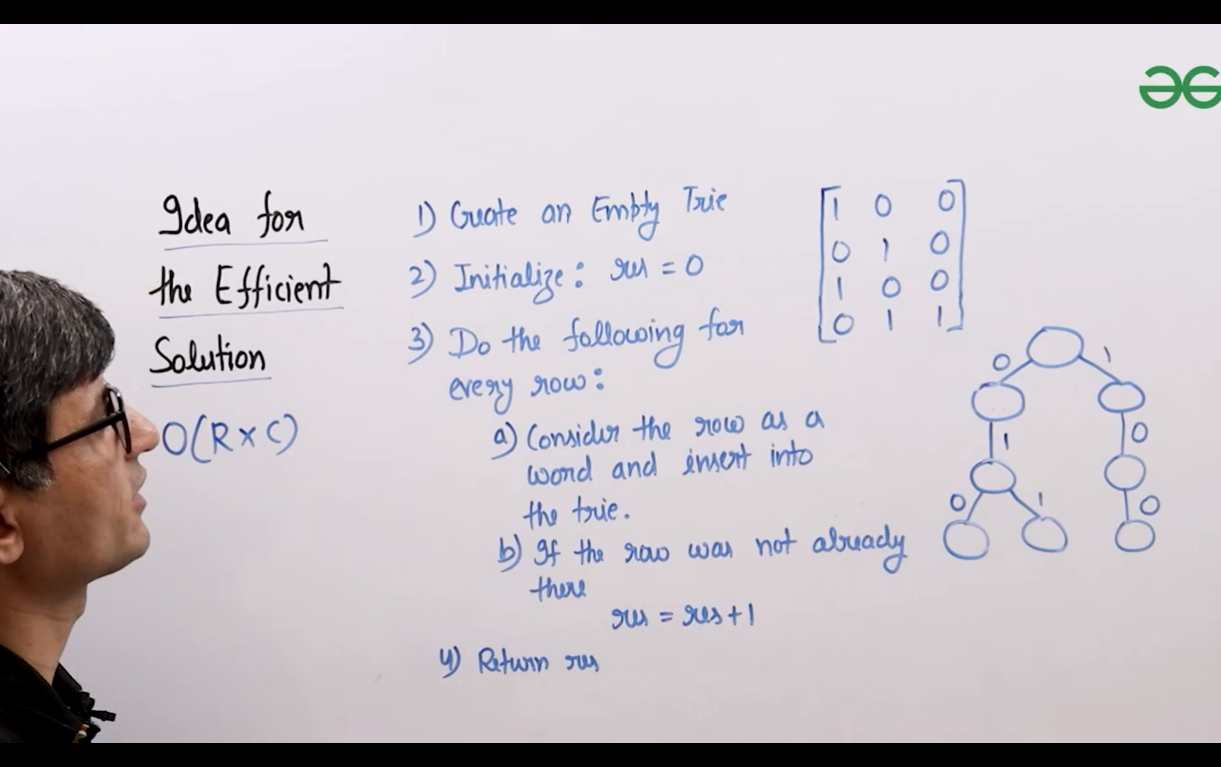 Idea for
the Efficient
Solution
O(R×C)
1) Create an Empty Trie
2) Initialize: res = 0
3) Do the following for
every row:
a) Consider the row as a
word and insert into
the trie.
b) If the row was not already
there
res = res + 1
4) Return res
1 0 0
0 1 0
1 0 0
0 1 1
0 1
1 0
0 1 0